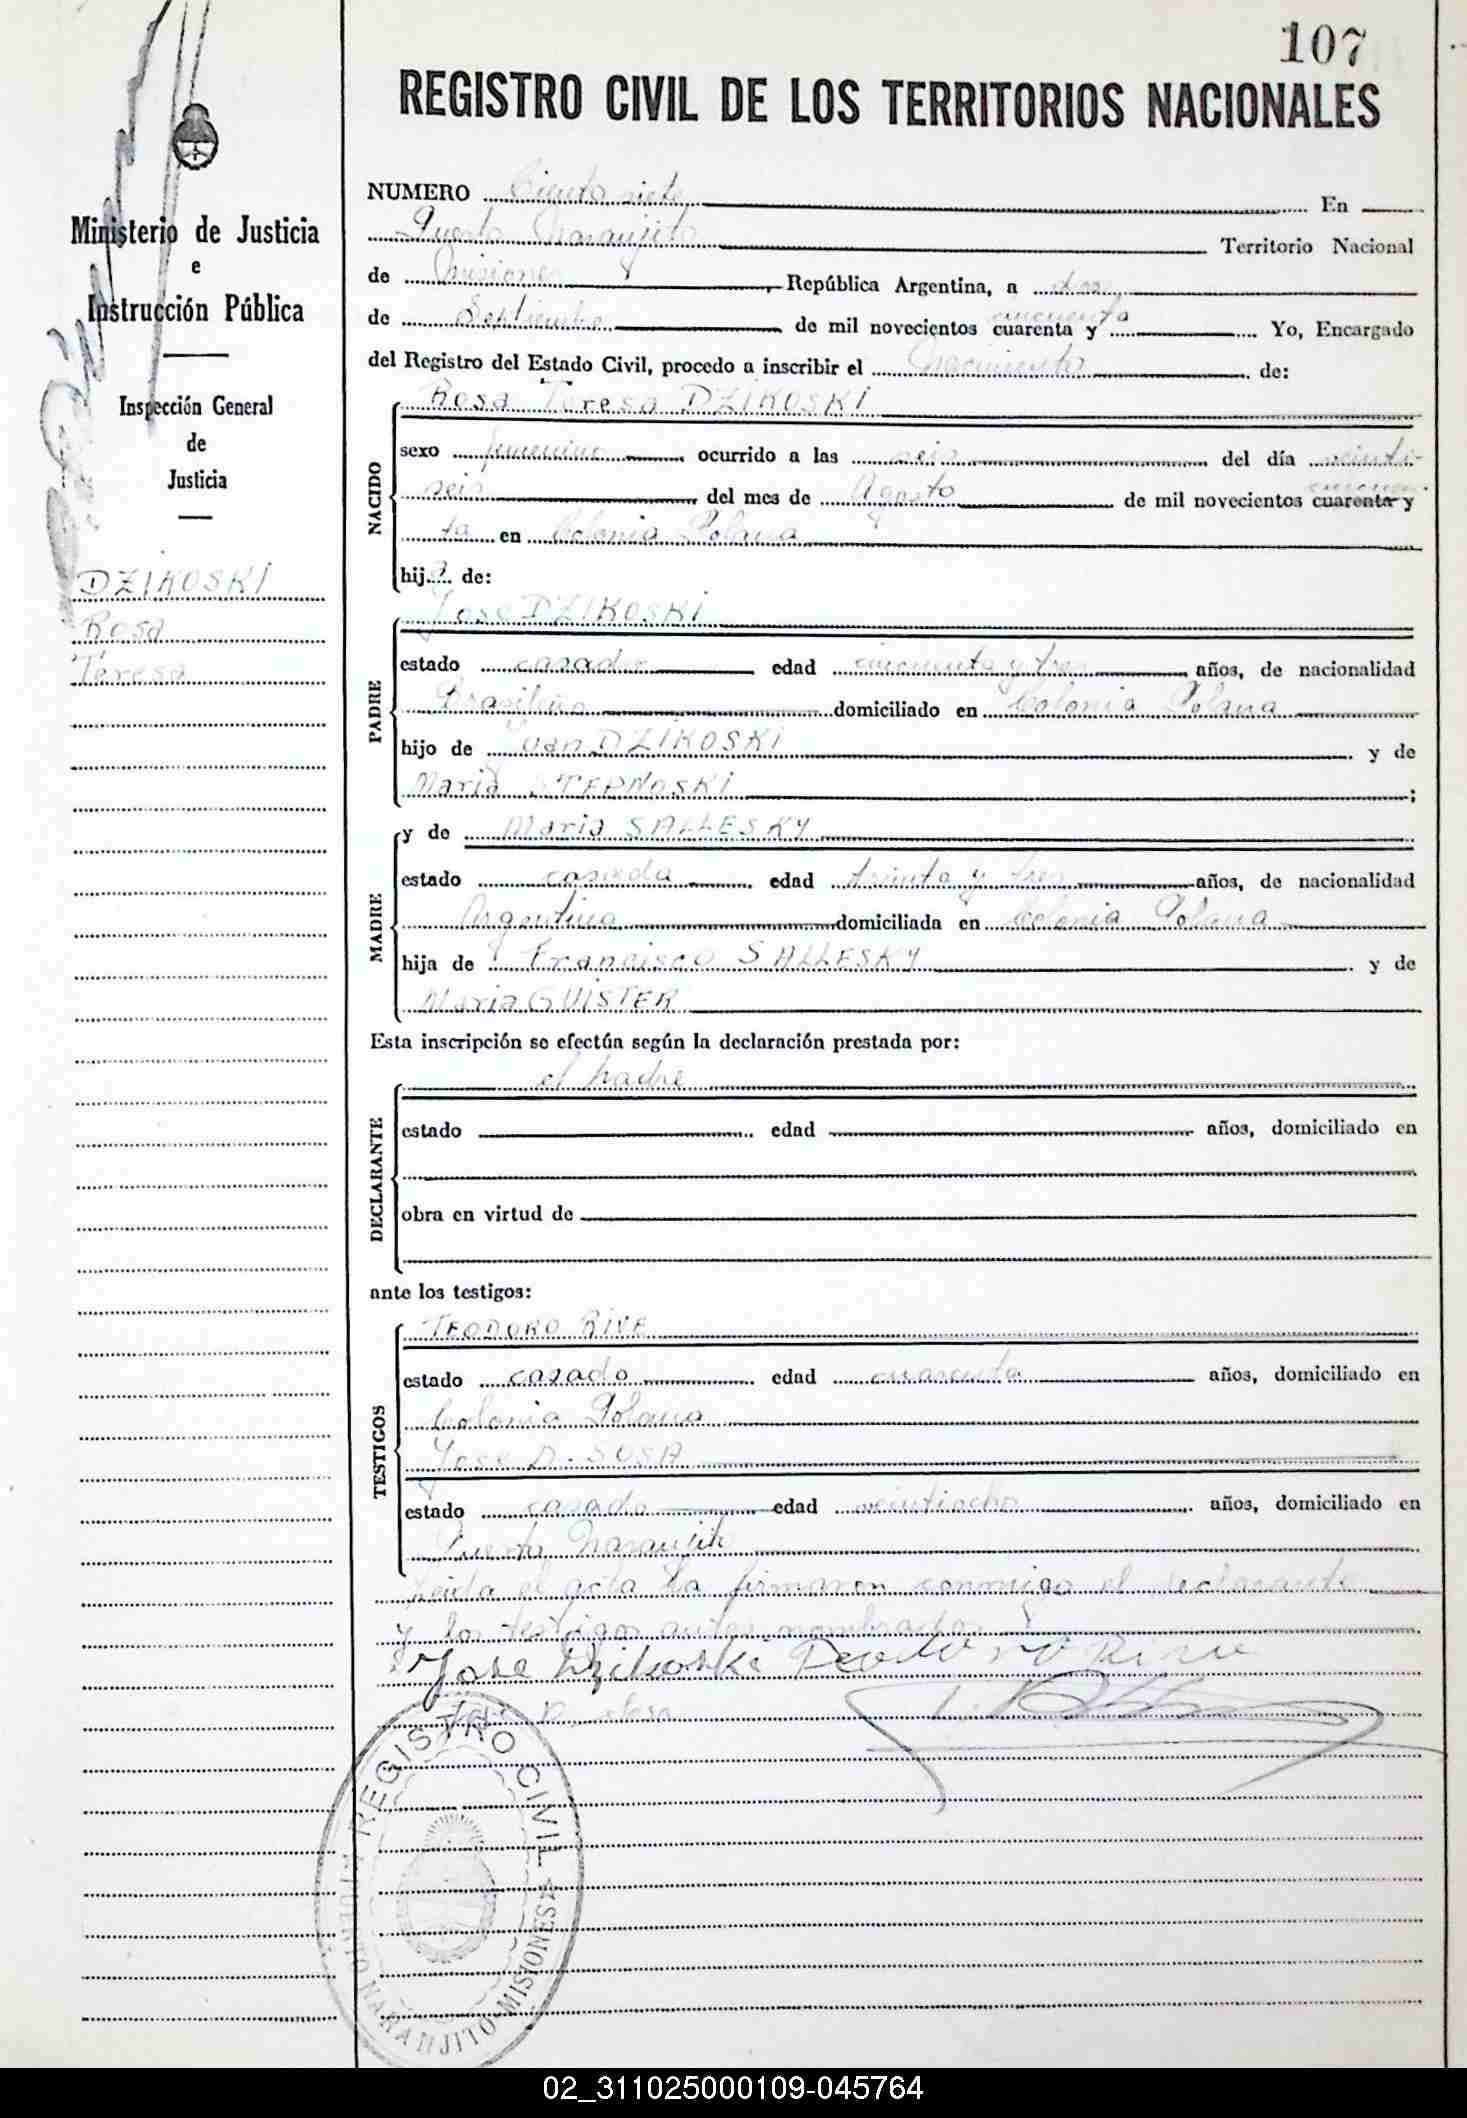 107
REGISTRO CIVIL DE LOS TERRITORIOS NACIONALES
Ministerio de Justicia
e
Instrucción Pública
Inspección General
de
Justicia
DZIKOSKI
Rosa
Teresa
NUMERO Ciento siete En
Puerto Naranjito Territorio Nacional
de Misiones, República Argentina, a dos
de Septiembre de mil novecientos cuarenta y cincuenta Yo, Encargado
del Registro del Estado Civil, procedo a inscribir el Nacimiento de:
NACIDO
Rosa Teresa DZIKOSKI
sexo femenino ocurrido a las seis del día veinti-
seis del mes de Agosto de mil novecientos cuarenta y cincuen-
ta en Colonia Polana
hija de:
PADRE
Jose DZIKOSKI
estado casado edad cincuenta y tres años, de nacionalidad
Brasileña domiciliado en Colonia Polana
hijo de Juan DZIKOSKI y de
Maria STERNOSKI;
MADRE
y de Maria SALLESKY
estado casada edad treinta y tres años, de nacionalidad
Argentina domiciliada en Colonia Polana
hija de Francisco SALLESKY y de
Maria GUISTER
Esta inscripción se efectúa según la declaración prestada por:
DECLARANTE
el padre
estado edad años, domiciliado en
obra en virtud de
ante los testigos:
TESTIGOS
TEODORO RIVE
estado casado edad cuarenta años, domiciliado en
Colonia Polana
Jose D. SOSA
estado casado edad veintiocho años, domiciliado en
Puerto Naranjito
Leida el acta la firmaron conmigo el declarante
y los testigos antes nombrados
Jose Dzikoski Teodoro Rive
Jose D. Sosa
REGISTRO CIVIL
PUERTO NARANJITO-MISIONES
02_311025000109-045764